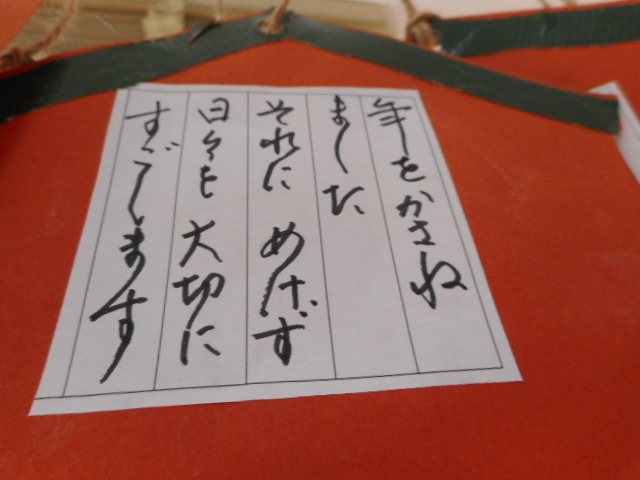 年をかさね
ました
それに めげず
日々を 大切に
すごします